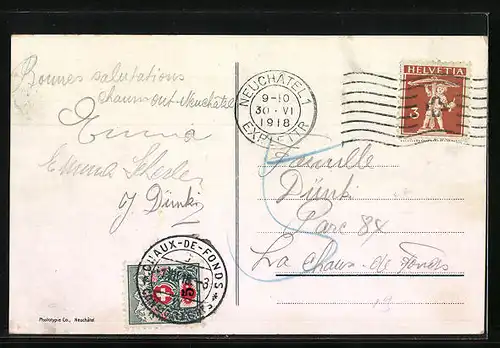 Bonnes salutations
Chaumont-Neuchâtel
Emma
Emma
Dünki
NEUCHATEL 1
9-10
30·VI
1918
EXP. LETTR.
HELVETIA
3
Famille
Dünki
Parc 84
La Chaux-de-Fonds
CHAUX-DE-FONDS
5
Phototypie Co., Neuchâtel